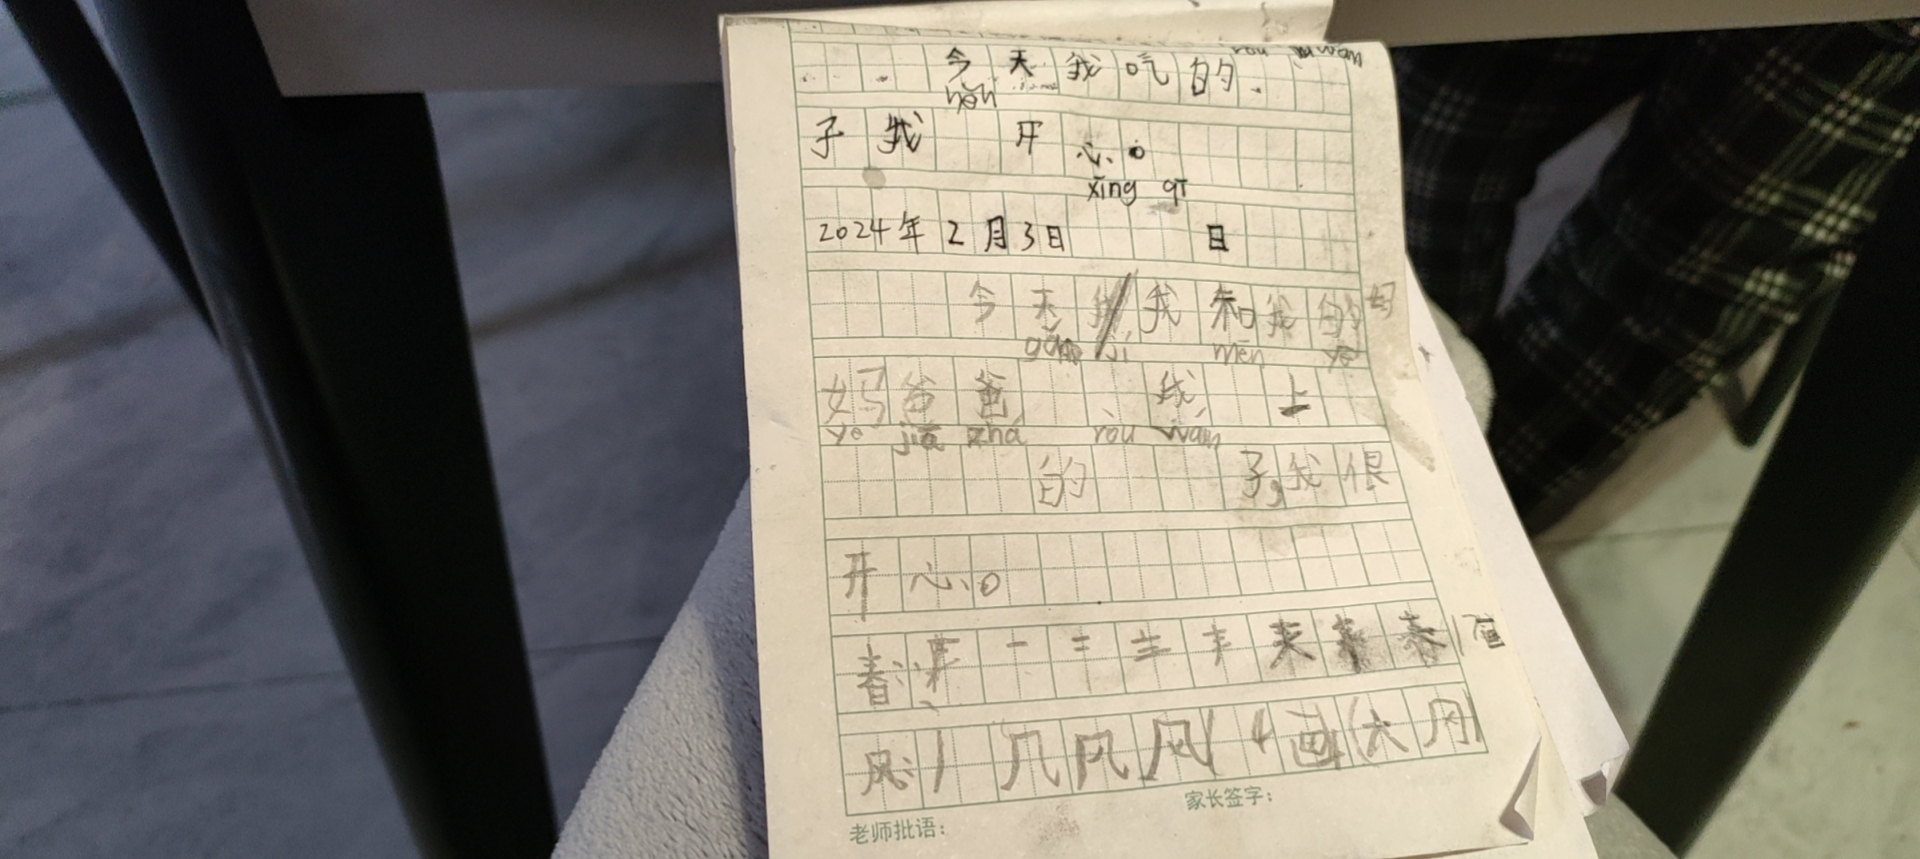 rou wan
今天我吃的
hěn
子我 开心。
xīng qī
2024年2月3日 日
今天我和我的妈
men ye
妈爸爸 我 上
ye jiā zhá ròu wán
的 子,我很
开心。
春: 一 二 三 丰 夫 春
风: 丿 几 风 风 4画(大风)
家长签字:
老师批语: